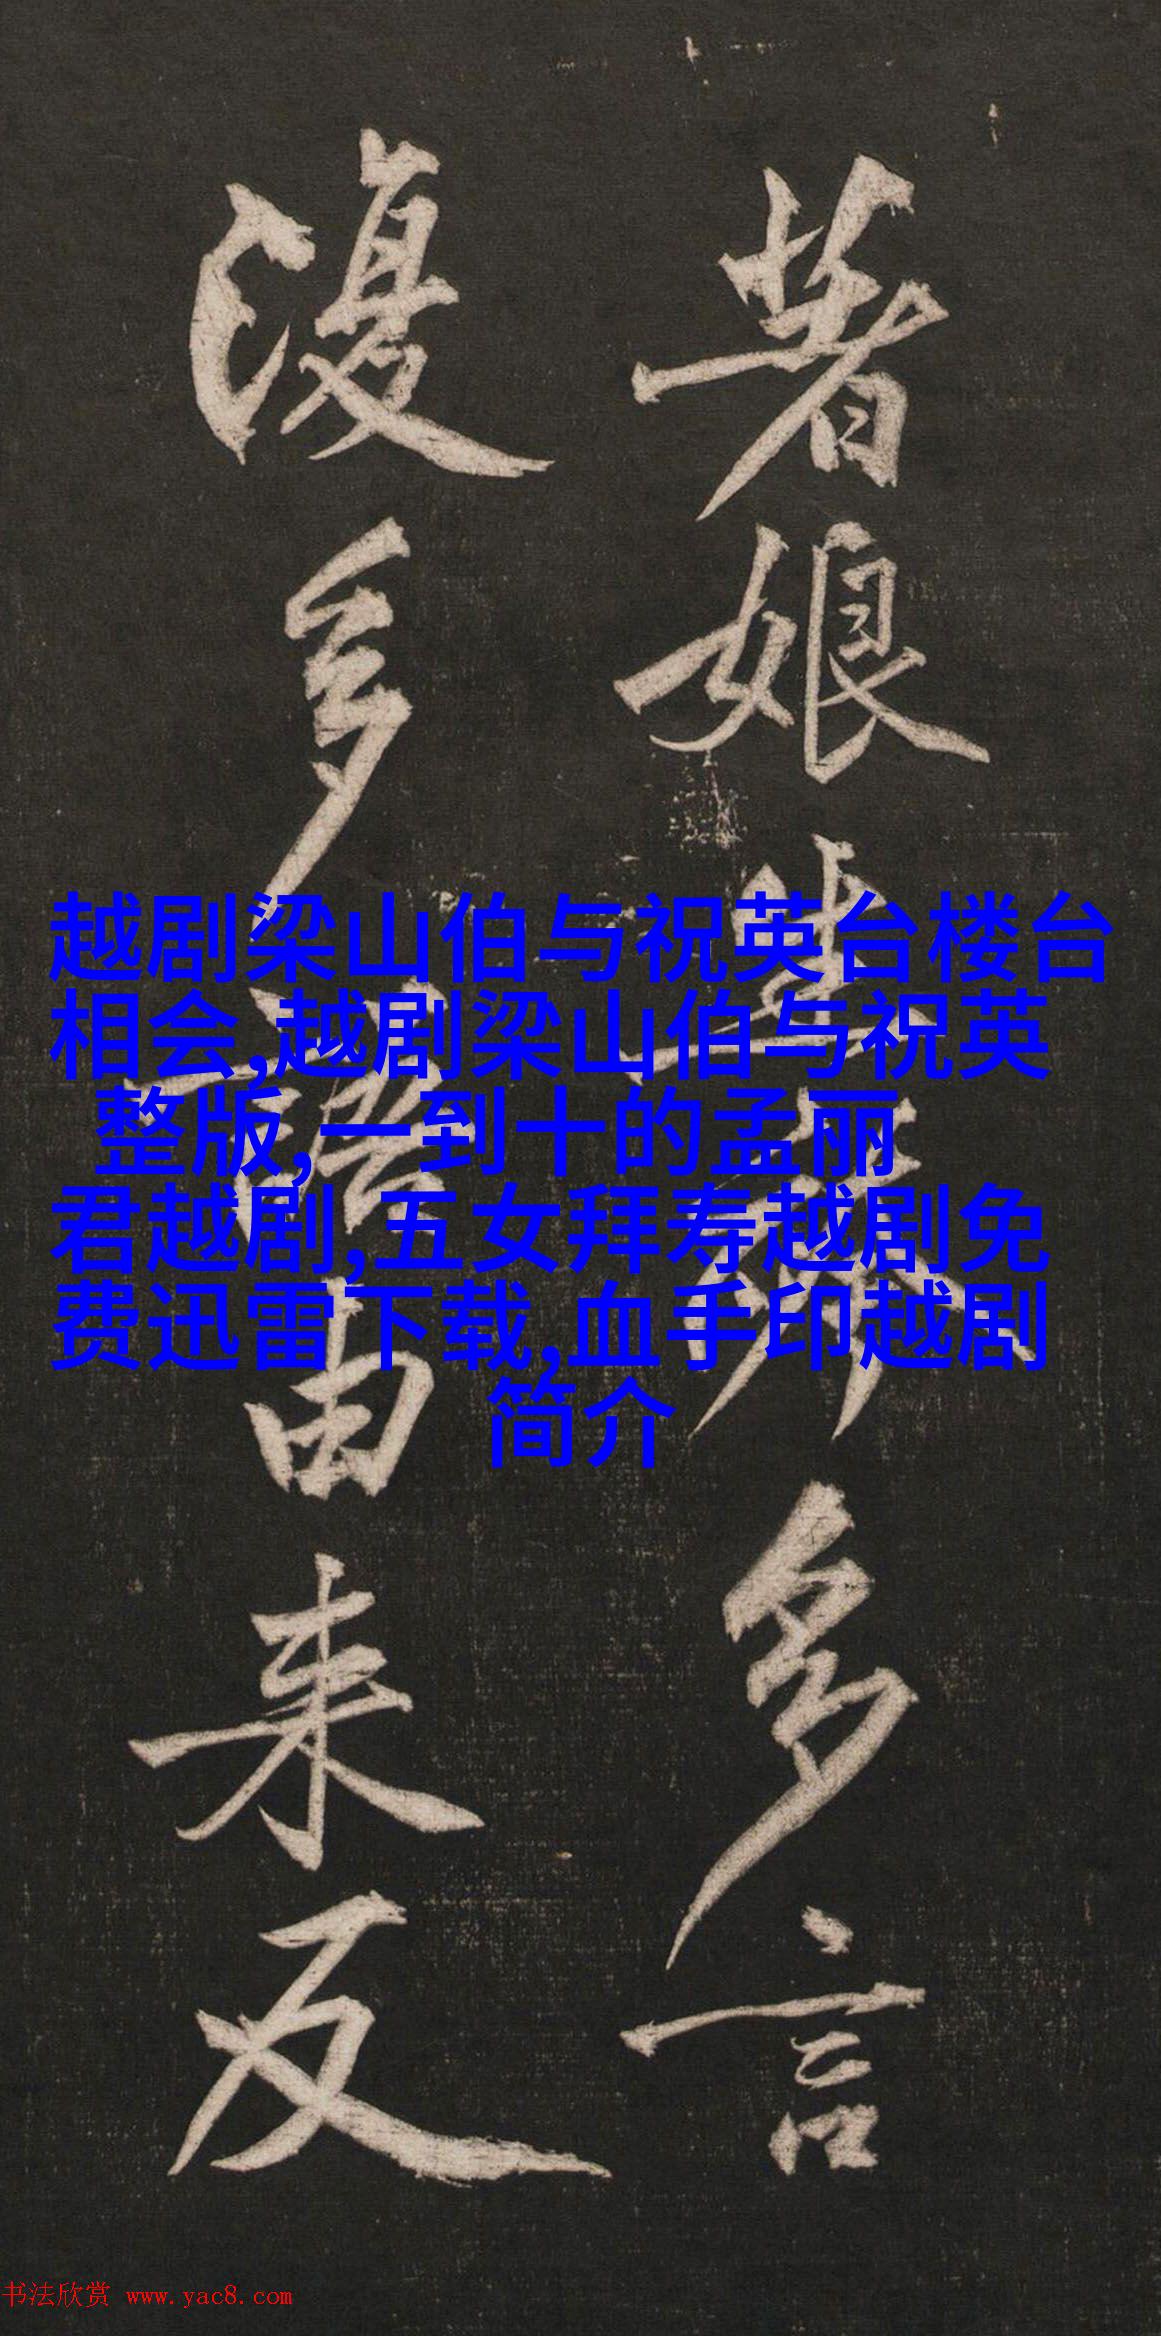 著娘多言
多語由来反
越剧梁山伯与祝英台楼台
相会,越剧梁山伯与祝英
整版,一到十的孟丽
君越剧,五女拜寿越剧免
费迅雷下载,血手印越剧
简介
书法欣赏 www.yac8.com